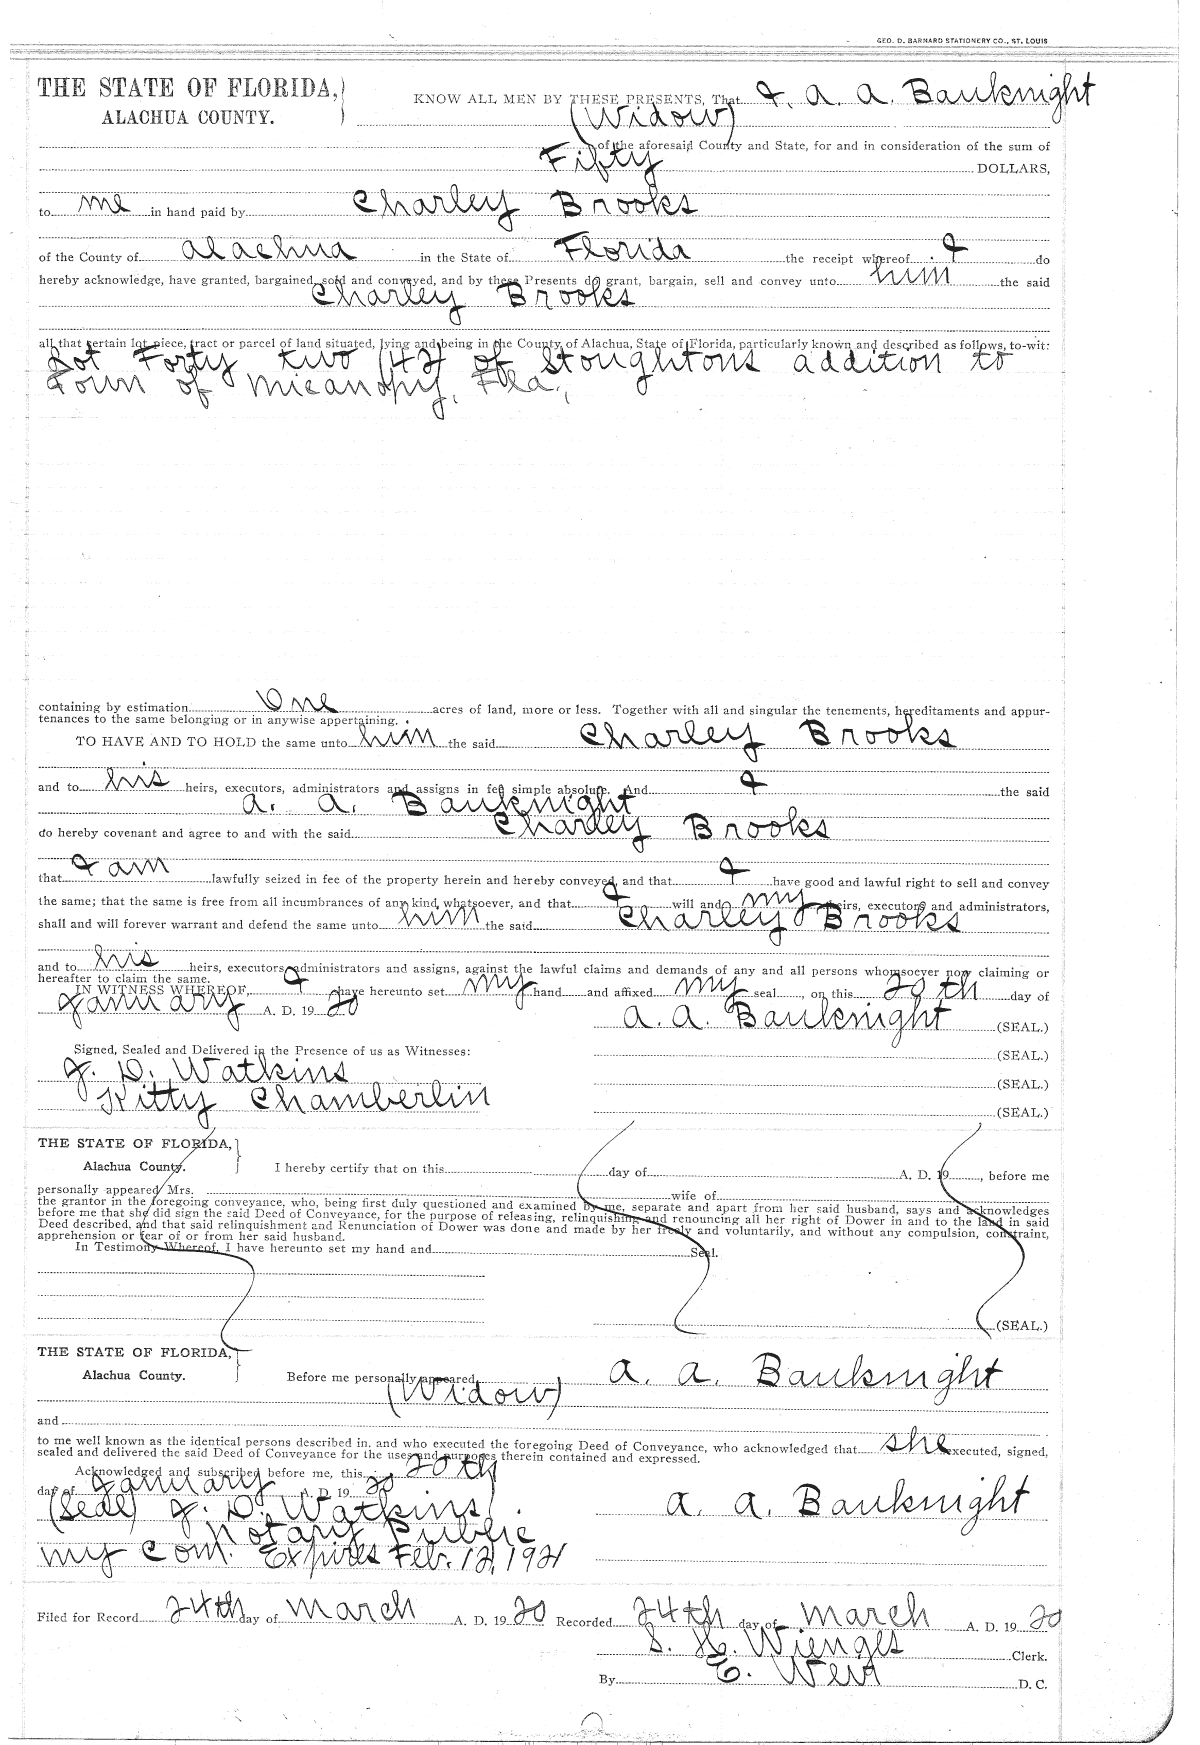 GEO. D. BARNARD STATIONERY CO., ST. LOUIS
THE STATE OF FLORIDA,
ALACHUA COUNTY.
KNOW ALL MEN BY THESE PRESENTS, That I, A. A. Bauknight
(Widow)
of the aforesaid County and State, for and in consideration of the sum of
Fifty DOLLARS,
to me in hand paid by Charley Brooks
of the County of Alachua in the State of Florida the receipt whereof I do
hereby acknowledge, have granted, bargained, sold and conveyed, and by these Presents do grant, bargain, sell and convey unto him the said
Charley Brooks
all that certain lot, piece, tract or parcel of land situated, lying and being in the County of Alachua, State of Florida, particularly known and described as follows, to-wit:
Lot Forty two (42 of Stoughtons addition to
Town of Micanopy, Fla.,
containing by estimation One acres of land, more or less. Together with all and singular the tenements, hereditaments and appur-
tenances to the same belonging or in anywise appertaining.
TO HAVE AND TO HOLD the same unto him the said Charley Brooks
and to his heirs, executors, administrators and assigns in fee simple absolute. And I the said
A. A. Bauknight
do hereby covenant and agree to and with the said Charley Brooks
that I am lawfully seized in fee of the property herein and hereby conveyed, and that I have good and lawful right to sell and convey
the same; that the same is free from all incumbrances of any kind whatsoever, and that I will and my heirs, executors and administrators,
shall and will forever warrant and defend the same unto him the said Charley Brooks
and to his heirs, executors, administrators and assigns, against the lawful claims and demands of any and all persons whomsoever now claiming or
hereafter to claim the same.
IN WITNESS WHEREOF, I have hereunto set my hand and affixed my seal, on this 20th day of
January A. D. 1920
A. A. Bauknight (SEAL.)
Signed, Sealed and Delivered in the Presence of us as Witnesses:
(SEAL.)
J. D. Watkins
(SEAL.)
Kitty Chamberlin
(SEAL.)
THE STATE OF FLORIDA,
Alachua County.
I hereby certify that on this day of A. D. 19, before me
personally appeared Mrs. wife of
the grantor in the foregoing conveyance, who, being first duly questioned and examined by me, separate and apart from her said husband, says and acknowledges
before me that she did sign the said Deed of Conveyance, for the purpose of releasing, relinquishing and renouncing all her right of Dower in and to the land in said
Deed described, and that said relinquishment and Renunciation of Dower was done and made by her freely and voluntarily, and without any compulsion, constraint,
apprehension or fear of or from her said husband.
In Testimony Whereof, I have hereunto set my hand and Seal.
(SEAL.)
THE STATE OF FLORIDA,
Alachua County.
Before me personally appeared A. A. Bauknight
(Widow)
and
to me well known as the identical persons described in, and who executed the foregoing Deed of Conveyance, who acknowledged that she executed, signed,
sealed and delivered the said Deed of Conveyance for the uses and purposes therein contained and expressed.
Acknowledged and subscribed before me, this 20th
day of January A. D. 1920
(Seal) J. D. Watkins,
A. A. Bauknight
Notary Public
My Com. Expires Feb. 12, 1921
Filed for Record 24th day of March A. D. 1920 Recorded 24th day of March A. D. 1920
S. H. Wienges Clerk.
By E. Weir D. C.